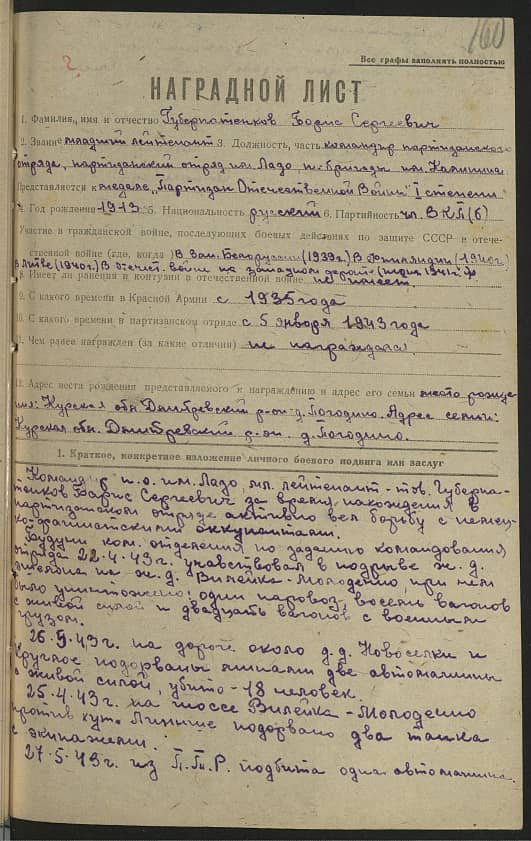 160
Все графы заполнять полностью
НАГРАДНОЙ ЛИСТ
1. Фамилия, имя и отчество Губернатенков Борис Сергеевич
2. Звание младший лейтенант 3. Должность, часть командир партизанского
отряда, партизанский отряд им. Лазо п. бригады им. Калинина
Представляется к медале „Партизан Отечественной Войны" I степени
4. Год рождения 1913 5. Национальность русский 6. Партийность чл. ВКП(б)
Участие в гражданской войне, последующих боевых действиях по защите СССР и отече-
ственной войне (где, когда) В Зап. Белоруссии (1939г.) В Финляндии (1940г.)
В Литве (1940г.) В отечест. войне на западном фронте (1941г.)
8. Имеет ли ранения и контузии в отечественной войне не имеет
9. С какого времени в Красной Армии с 1935 года
10. С какого времени в партизанском отряде с 5 января 1943 года
11. Чем ранее награжден (за какие отличия) не награждался
12. Адрес места рождения представляемого к награждению и адрес его семьи место рожде
ния: Курская обл. р-он д. Погодино. Адрес семьи:
Курская обл. р-он. д. Погодино.
1. Краткое, конкретное изложение личного боевого подвига или заслуг
Командир п.о. им. Лазо, мл. лейтенант - тов. Губерна-
тенков Барис Сергеевич за время нахождения в
партизанском отряде активно вел борьбу с немец-
ко-фашистскими оккупантами.
Будучи ком. отделения по заданию командования
отряда 22.4.43г. учавствовал в подрыве ж.д.
эшелона на ж.д. Вилейка-Молодечно, при чем
было уничтожено: один паровоз, восемь вагонов
с живой силой и двадцать вагонов с военным
грузом.
26.5.43г. на дороге около д.д. Новоселки и
Круглое подорваны минами две автомашины
с живой силой, убито - 18 человек.
25.4.43г. на шоссе Вилейка - Молодечно
против хут. подорвано два танка
с экипажем.
27.5.43г. из П.Т.Р. подбита одна автомашина.